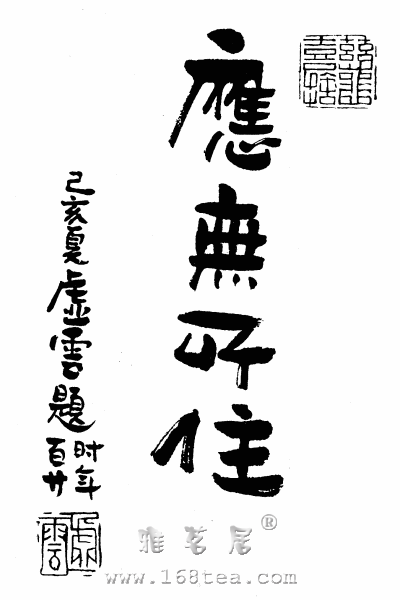 慈悲喜捨
應無所住
己亥夏虛雲題
时年
百廿
虛雲
雅茗居®
www.168tea.com